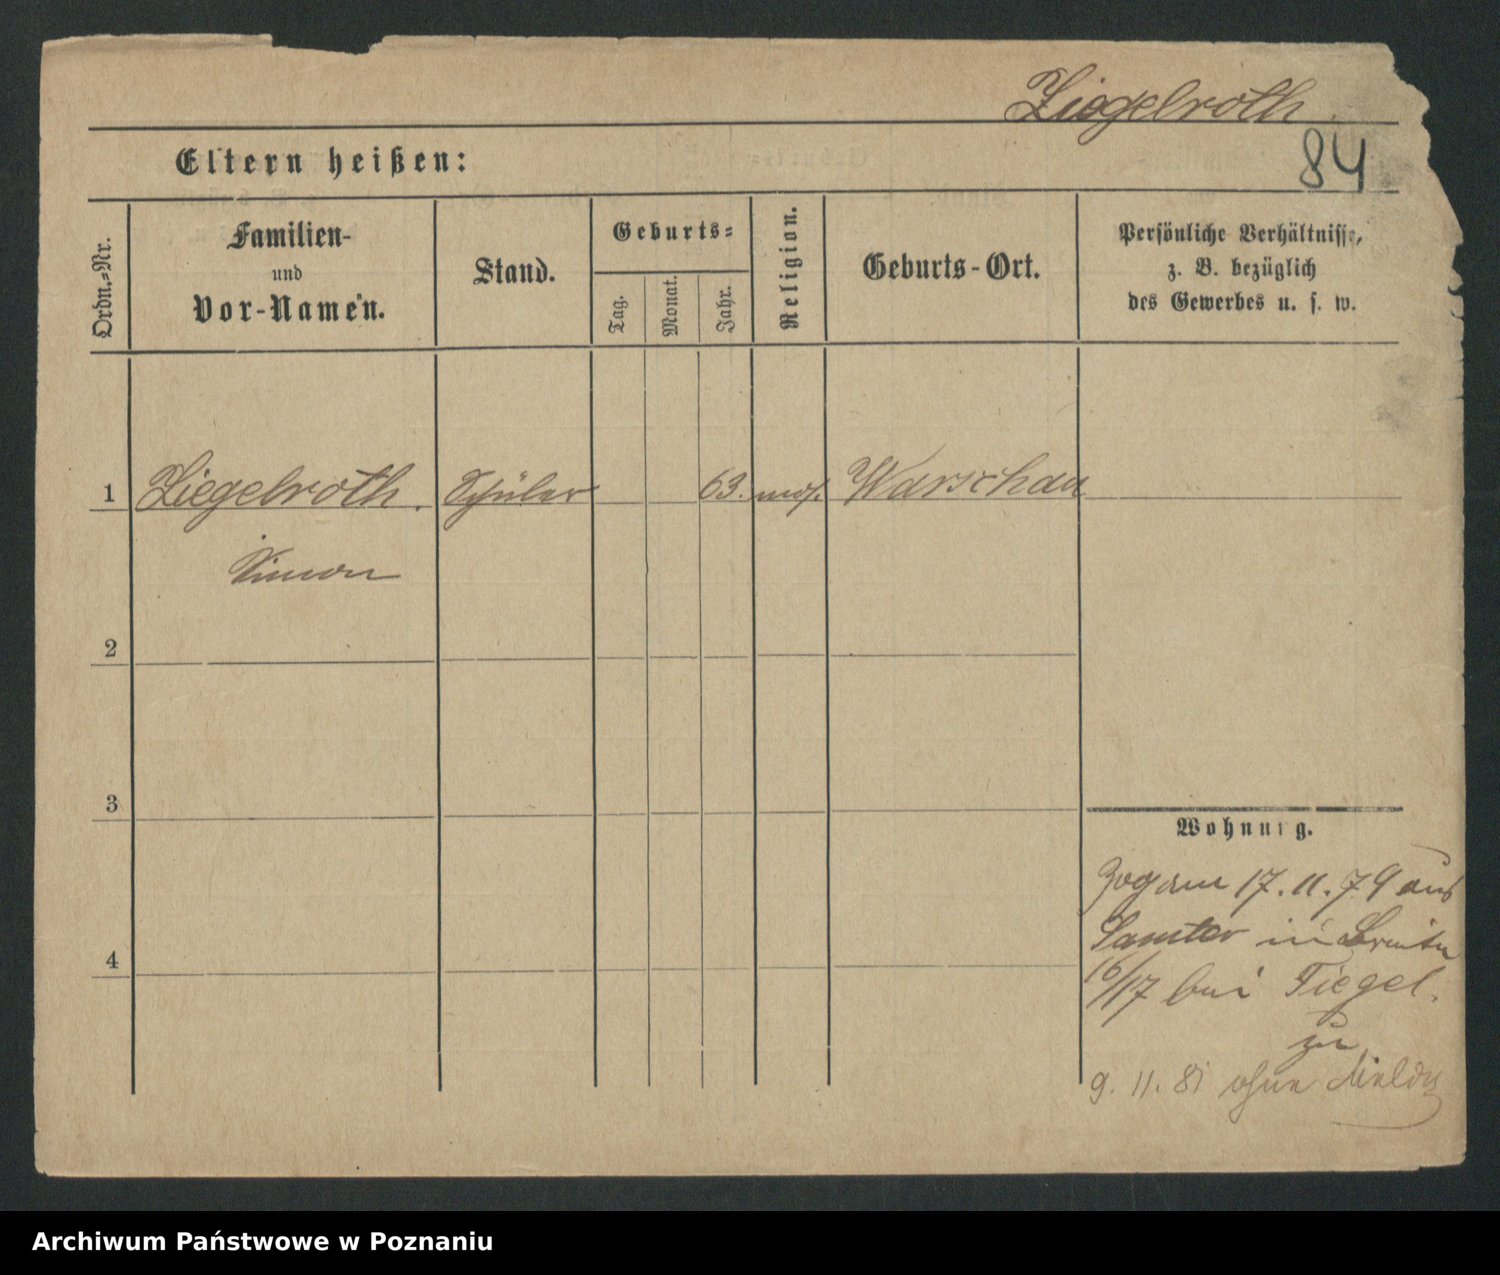 Ziegelroth.
84
Eltern heißen:
Ordn.-Nr.
Familien-
und
Vor-Namen.
Stand.
Geburts-
Tag.
Monat.
Jahr.
Religion.
Geburts-Ort.
Persönliche Verhältnisse,
z. B. bezüglich
des Gewerbes u. s. w.
1 Ziegelroth. Schüler 63. mos. Warschau
Simon
2
3
4
Wohnung.
Zog am 17.11.79 aus
Samter in Breite
16/17 bei Tiegel.
zu
9. 11. 81 ohne Meldg